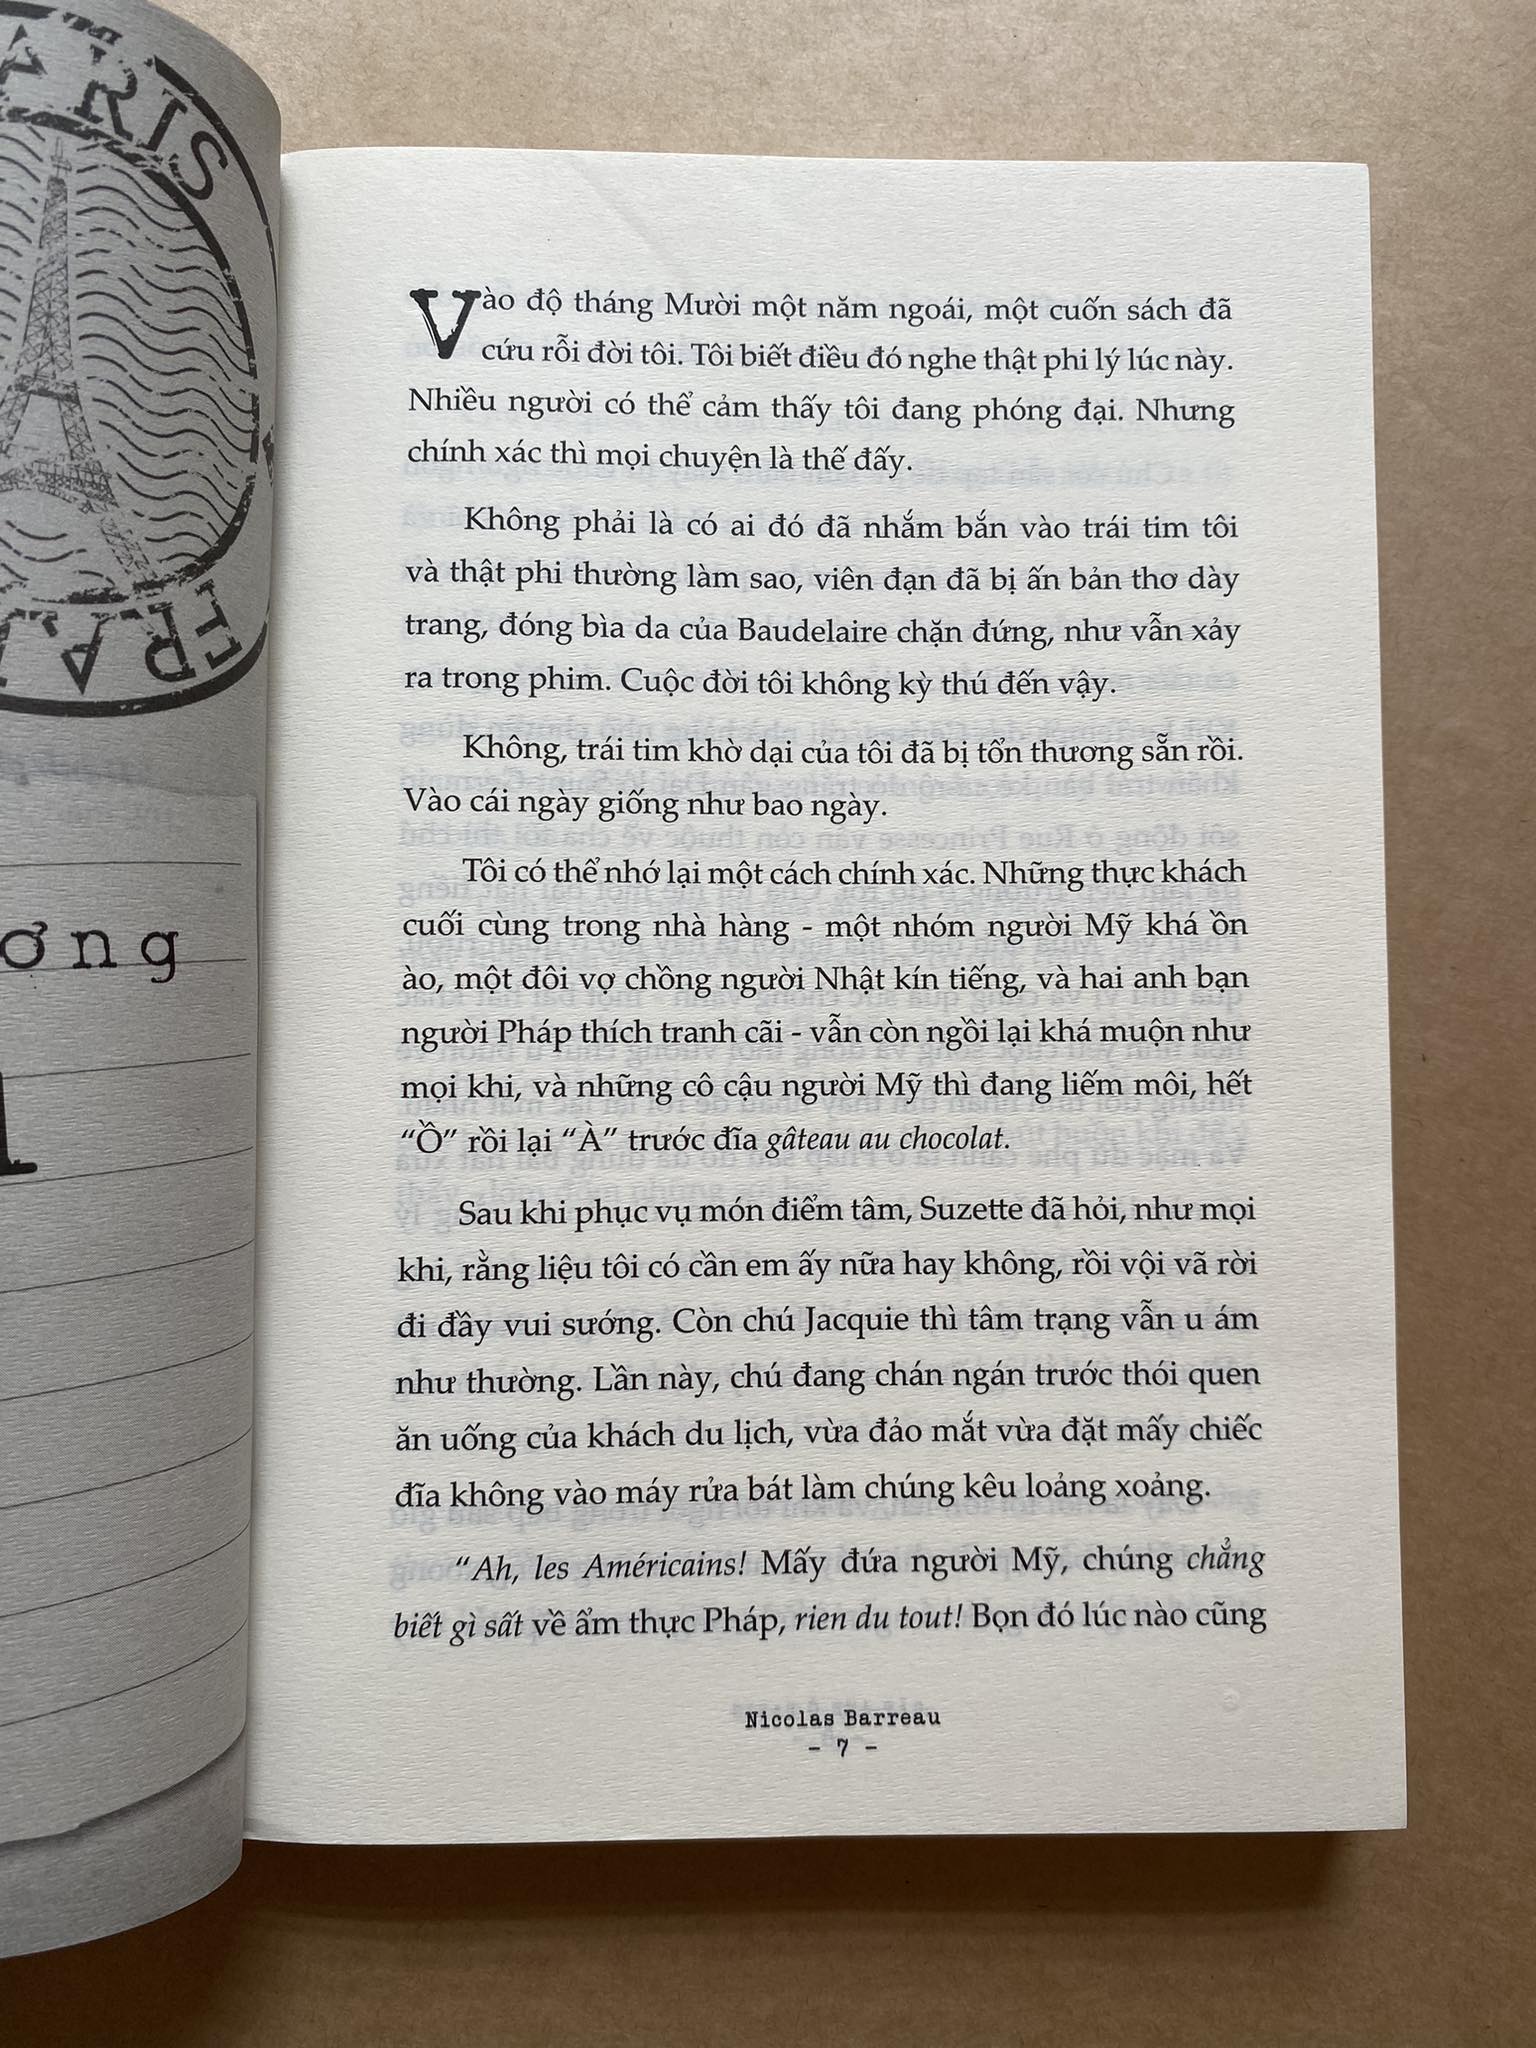 PARIS
FRAN
ương
Vào độ tháng Mười một năm ngoái, một cuốn sách đã
cứu rỗi đời tôi. Tôi biết điều đó nghe thật phi lý lúc này.
Nhiều người có thể cảm thấy tôi đang phóng đại. Nhưng
chính xác thì mọi chuyện là thế đấy.
Không phải là có ai đó đã nhắm bắn vào trái tim tôi
và thật phi thường làm sao, viên đạn đã bị ấn bản thơ dày
trang, đóng bìa da của Baudelaire chặn đứng, như vẫn xảy
ra trong phim. Cuộc đời tôi không kỳ thú đến vậy.
Không, trái tim khờ dại của tôi đã bị tổn thương sẵn rồi.
Vào cái ngày giống như bao ngày.
Tôi có thể nhớ lại một cách chính xác. Những thực khách
cuối cùng trong nhà hàng - một nhóm người Mỹ khá ồn
ào, một đôi vợ chồng người Nhật kín tiếng, và hai anh bạn
người Pháp thích tranh cãi - vẫn còn ngồi lại khá muộn như
mọi khi, và những cô cậu người Mỹ thì đang liếm môi, hết
“Ồ” rồi lại “À” trước đĩa gâteau au chocolat.
Sau khi phục vụ món điểm tâm, Suzette đã hỏi, như mọi
khi, rằng liệu tôi có cần em ấy nữa hay không, rồi vội vã rời
đi đầy vui sướng. Còn chú Jacquie thì tâm trạng vẫn u ám
như thường. Lần này, chú đang chán ngán trước thói quen
ăn uống của khách du lịch, vừa đảo mắt vừa đặt mấy chiếc
đĩa không vào máy rửa bát làm chúng kêu loảng xoảng.
“Ah, les Américains! Mấy đứa người Mỹ, chúng chẳng
biết gì sất về ẩm thực Pháp, rien du tout! Bọn đó lúc nào cũng
Nicolas Barreau
- 7 -